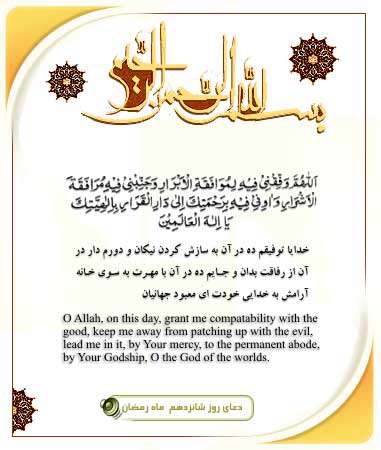 بسم الله الرحمن الرحیم
اَللّٰهُمَّ وَفِّقْنِي فِيهِ لِمُوَافَقَةِ الْأَبْرَارِ وَجَنِّبْنِي فِيهِ مُرَافَقَةَ
الْأَشْرَارِ وَآوِنِي فِيهِ بِرَحْمَتِكَ إِلَى دَارِ الْقَرَارِ بِإِلٰهِيَّتِكَ
يَا إِلٰهَ الْعَالَمِينَ
خدایا توفیقم ده در آن به سازش کردن نیکان و دورم دار در
آن از رفاقت بدان و جایم ده در آن با مهرت به سوی خانه
آرامش به خدایی خودت ای معبود جهانیان
O Allah, on this day, grant me compatability with the
good, keep me away from patching up with the evil,
lead me in it, by Your mercy, to the permanent abode,
by Your Godship, O the God of the worlds.
دعای روز شانزدهم ماه رمضان